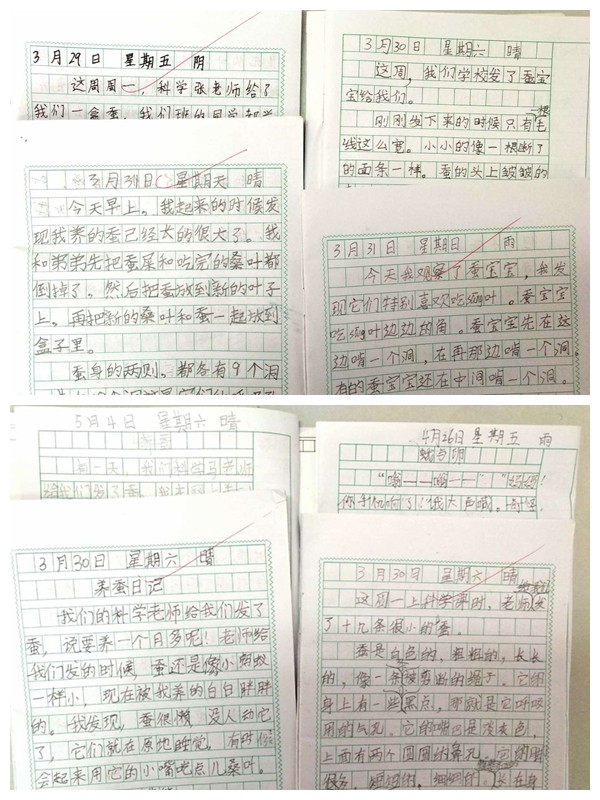 3月29日 星期五 阴
这周周一，科学张老师给了
我们一盒蚕，我们班的同学都学
3月30日 星期六 晴
这周，我们学校发了蚕宝
宝给我们。
一根
刚刚发下来的时候只有毛
线这么宽。小小的像一根断了
的面条一样。蚕的头上皱皱的
3月31日 星期天 晴
今天早上，我起来的时候发
现我养的蚕已经长的很大了。我
和弟弟先把蚕屎和吃完的桑叶都
倒掉了。然后把蚕放到新的叶子
上。再把新的桑叶和蚕一起放到
盒子里。
蚕身的两则。都各有9个洞
3月31日 星期日 雨
今天我观察了蚕宝宝，我发
现它们特别喜欢吃sāng叶。蚕宝宝
吃sāng叶边边的角。蚕宝宝先在这
边啃一个洞，在再那边啃一个洞，
有的蚕宝宝还在中间啃一个洞。
5月4日 星期六 晴
有一天，我们科学马老师
给我们发了蚕，
4月26日 星期五 雨
蛾与卵
“嗡——嗡——”“妈妈！
你手机响了！”我大声喊。
3月30日 星期六 晴
养蚕日记
我们的科学老师给我们发了
蚕，说要养一个月多呢！老师给
我们发的时候，蚕还是像小蚂蚁
一样小，现在被我养的白白胖胖
的。我发现，蚕很懒，没人动它
了，它们就在原地睡觉，有时候
会起来用它的小嘴吃点儿桑叶。
3月30日 星期六 晴
给我们
这周一上科学课时，老师发
了十几条很小的蚕。
蚕是白色的，粗粗的，长长
的，像一条被剪断的绳子。它的
身上有一些黑点，那就是它呼吸
用的气孔。它的嘴巴是淡灰色，
上面有两个圆圆的鼻孔。它的脚
很多，短短的，细细的，长在身